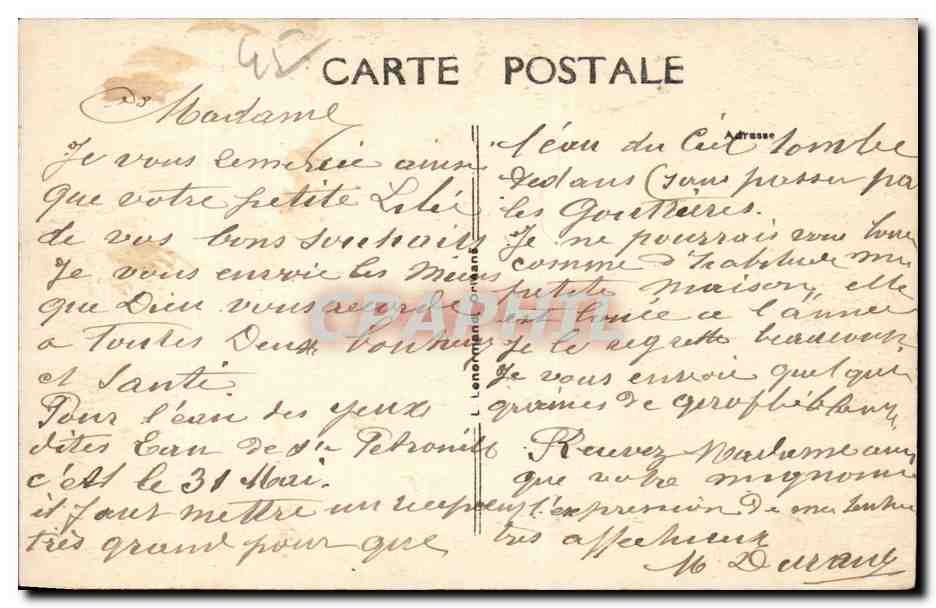 45
CARTE POSTALE
Madame
Je vous remercie ainsi
que votre petite Lilie
de vos bons souhaits
Je vous envoie les Miens
que Dieu vous accorde
a Toutes Deux bonheur
et Santé
Pour l'eau des yeux
dites Eau de Ste Petronille
c'est le 31 Mai.
il faut mettre un recipient
très grand pour que
L Lenormand, Orléans
Adresse
l'eau du Ciel tombe
Dedans (sans passer par
les Gouttières.
Je ne pourrais vous louer
comme d'habitude ma
petite maison, elle
est louée a l'année
Je le regrette beaucoup.
Je vous envoie quelque
graines de giroflé
Recevez Madame ainsi
que votre mignonne
l'expression de mes
très affectueux
M Durand
CPAPHIL